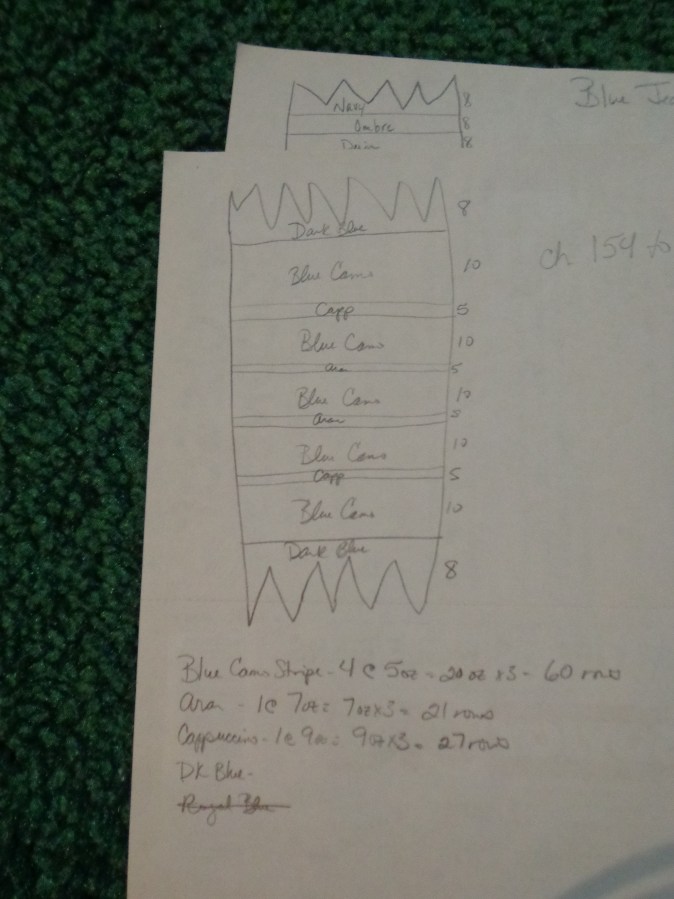 Navy 8
Blue
Ombre 8
8
8
Dark Blue
Blue Camo 10
ch 154 to
Capp 5
Blue Camo 10
Aran 5
Blue Camo 10
Aran 5
Blue Camo 10
Capp 5
Blue Camo 10
Dark Blue
8
Blue Camo Stripe - 4 @ 5oz = 20 oz x3 - 60 rows
Aran - 1@ 7oz = 7oz x3 = 21 rows
Cappuccino - 1@ 9oz = 9oz x3 = 27 rows
DK Blue -
Royal Blue